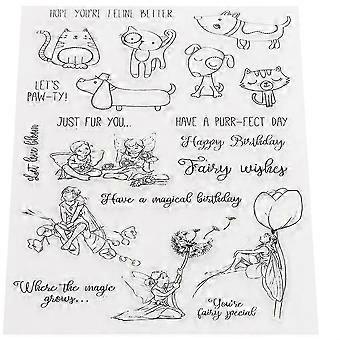 HOPE YOU'RE FELINE BETTER
LET'S
PAW-TY!
JUST FUR YOU...
HAVE A PURR-FECT DAY
Happy Birthday
Let love bloom
Fairy wishes
Have a magical birthday
Where the magic
grows...
You're
fairy special